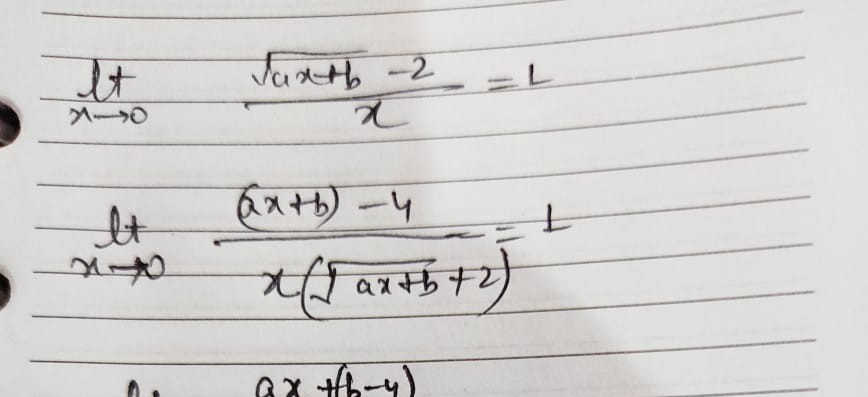 lt x→0 √(ax+b) -2 / x = 1
lt x→0 (ax+b) -4 / x(√(ax+b) +2) = 1
ax +(b-4)